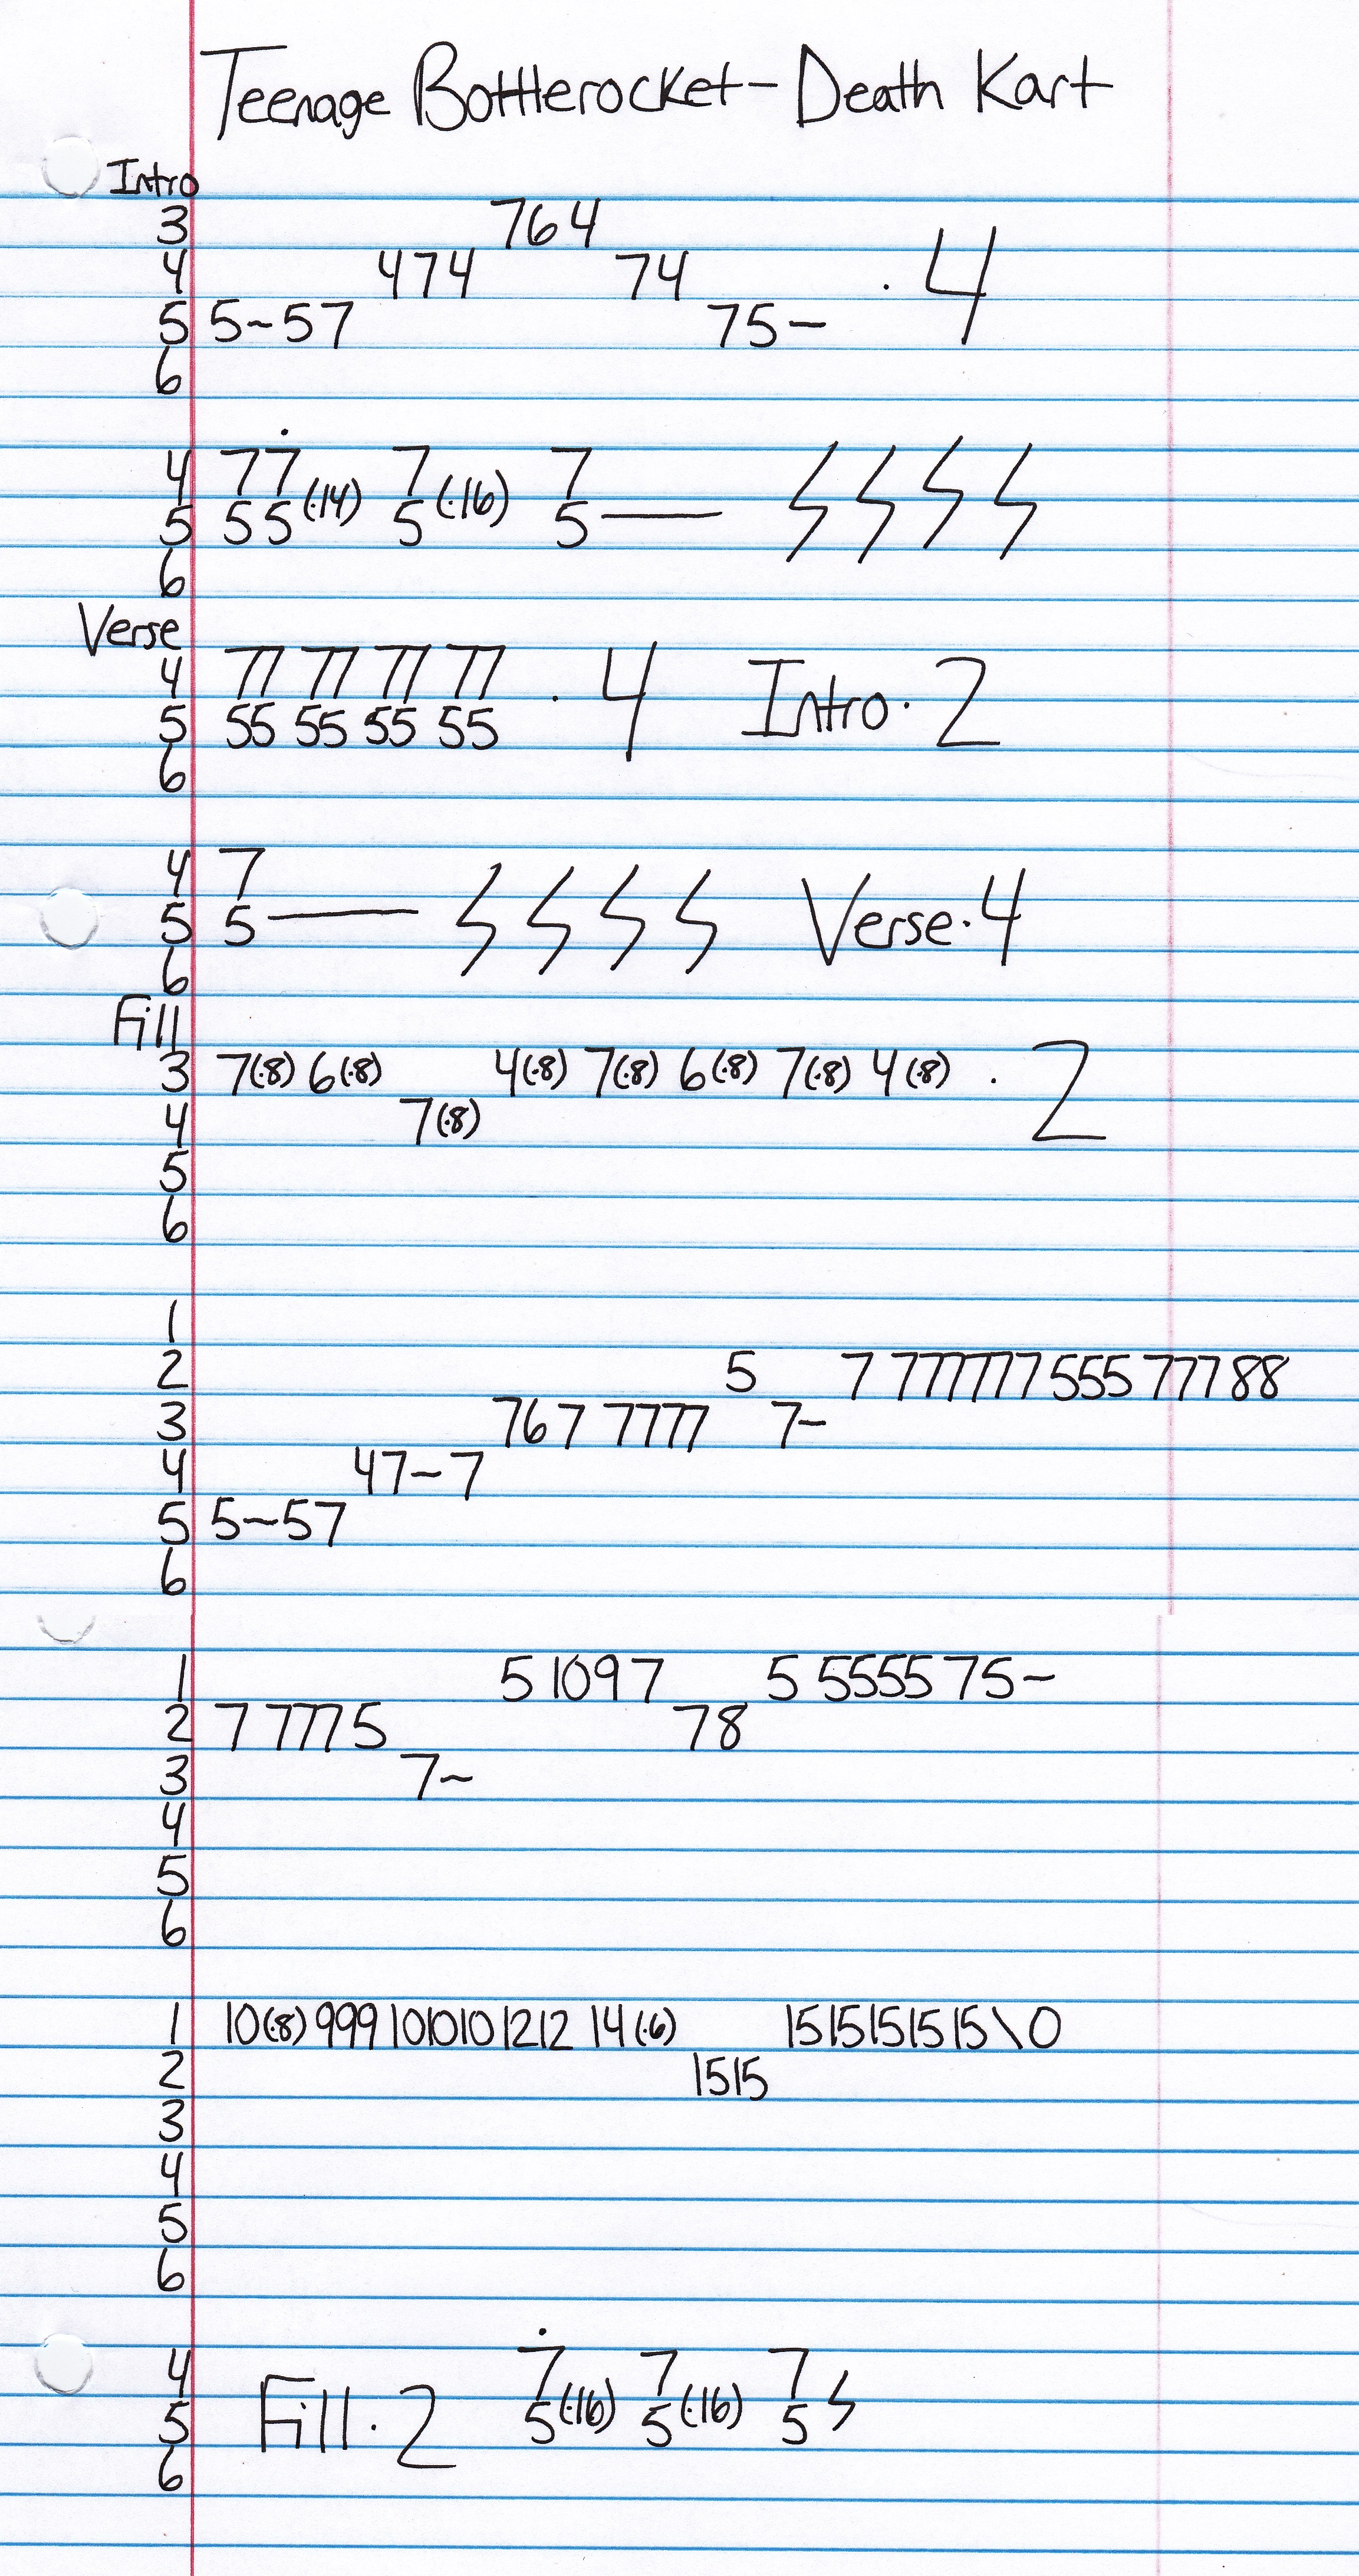 Teenage Bottlerocket - Death Kart
Intro
3 764
4 474 74 · 4
5 5~57 75-
6
4 77(·14) 7(·16) 7
5 55 5 5—
6
Verse
4 77 77 77 77 · 4 Intro · 2
5 55 55 55 55
6
4 7
5 5— Verse · 4
6
Fill
3 7(·8) 6(·8) 4(·8) 7(·8) 6(·8) 7(·8) 4(·8) · 2
4 7(·8)
5
6
1
2 5 7 777777 555 777 88
3 767 7777 7~
4 47~7
5 5~57
6
1 5 10 9 7 5 5555 75~
2 7 777 5 78
3 7~
4
5
6
1 10(·8) 999 101010 1212 14(·6) 1515151515\0
2 1515
3
4
5
6
4 7 7 7
5 Fill · 2 5(·16) 5(·16) 5
6